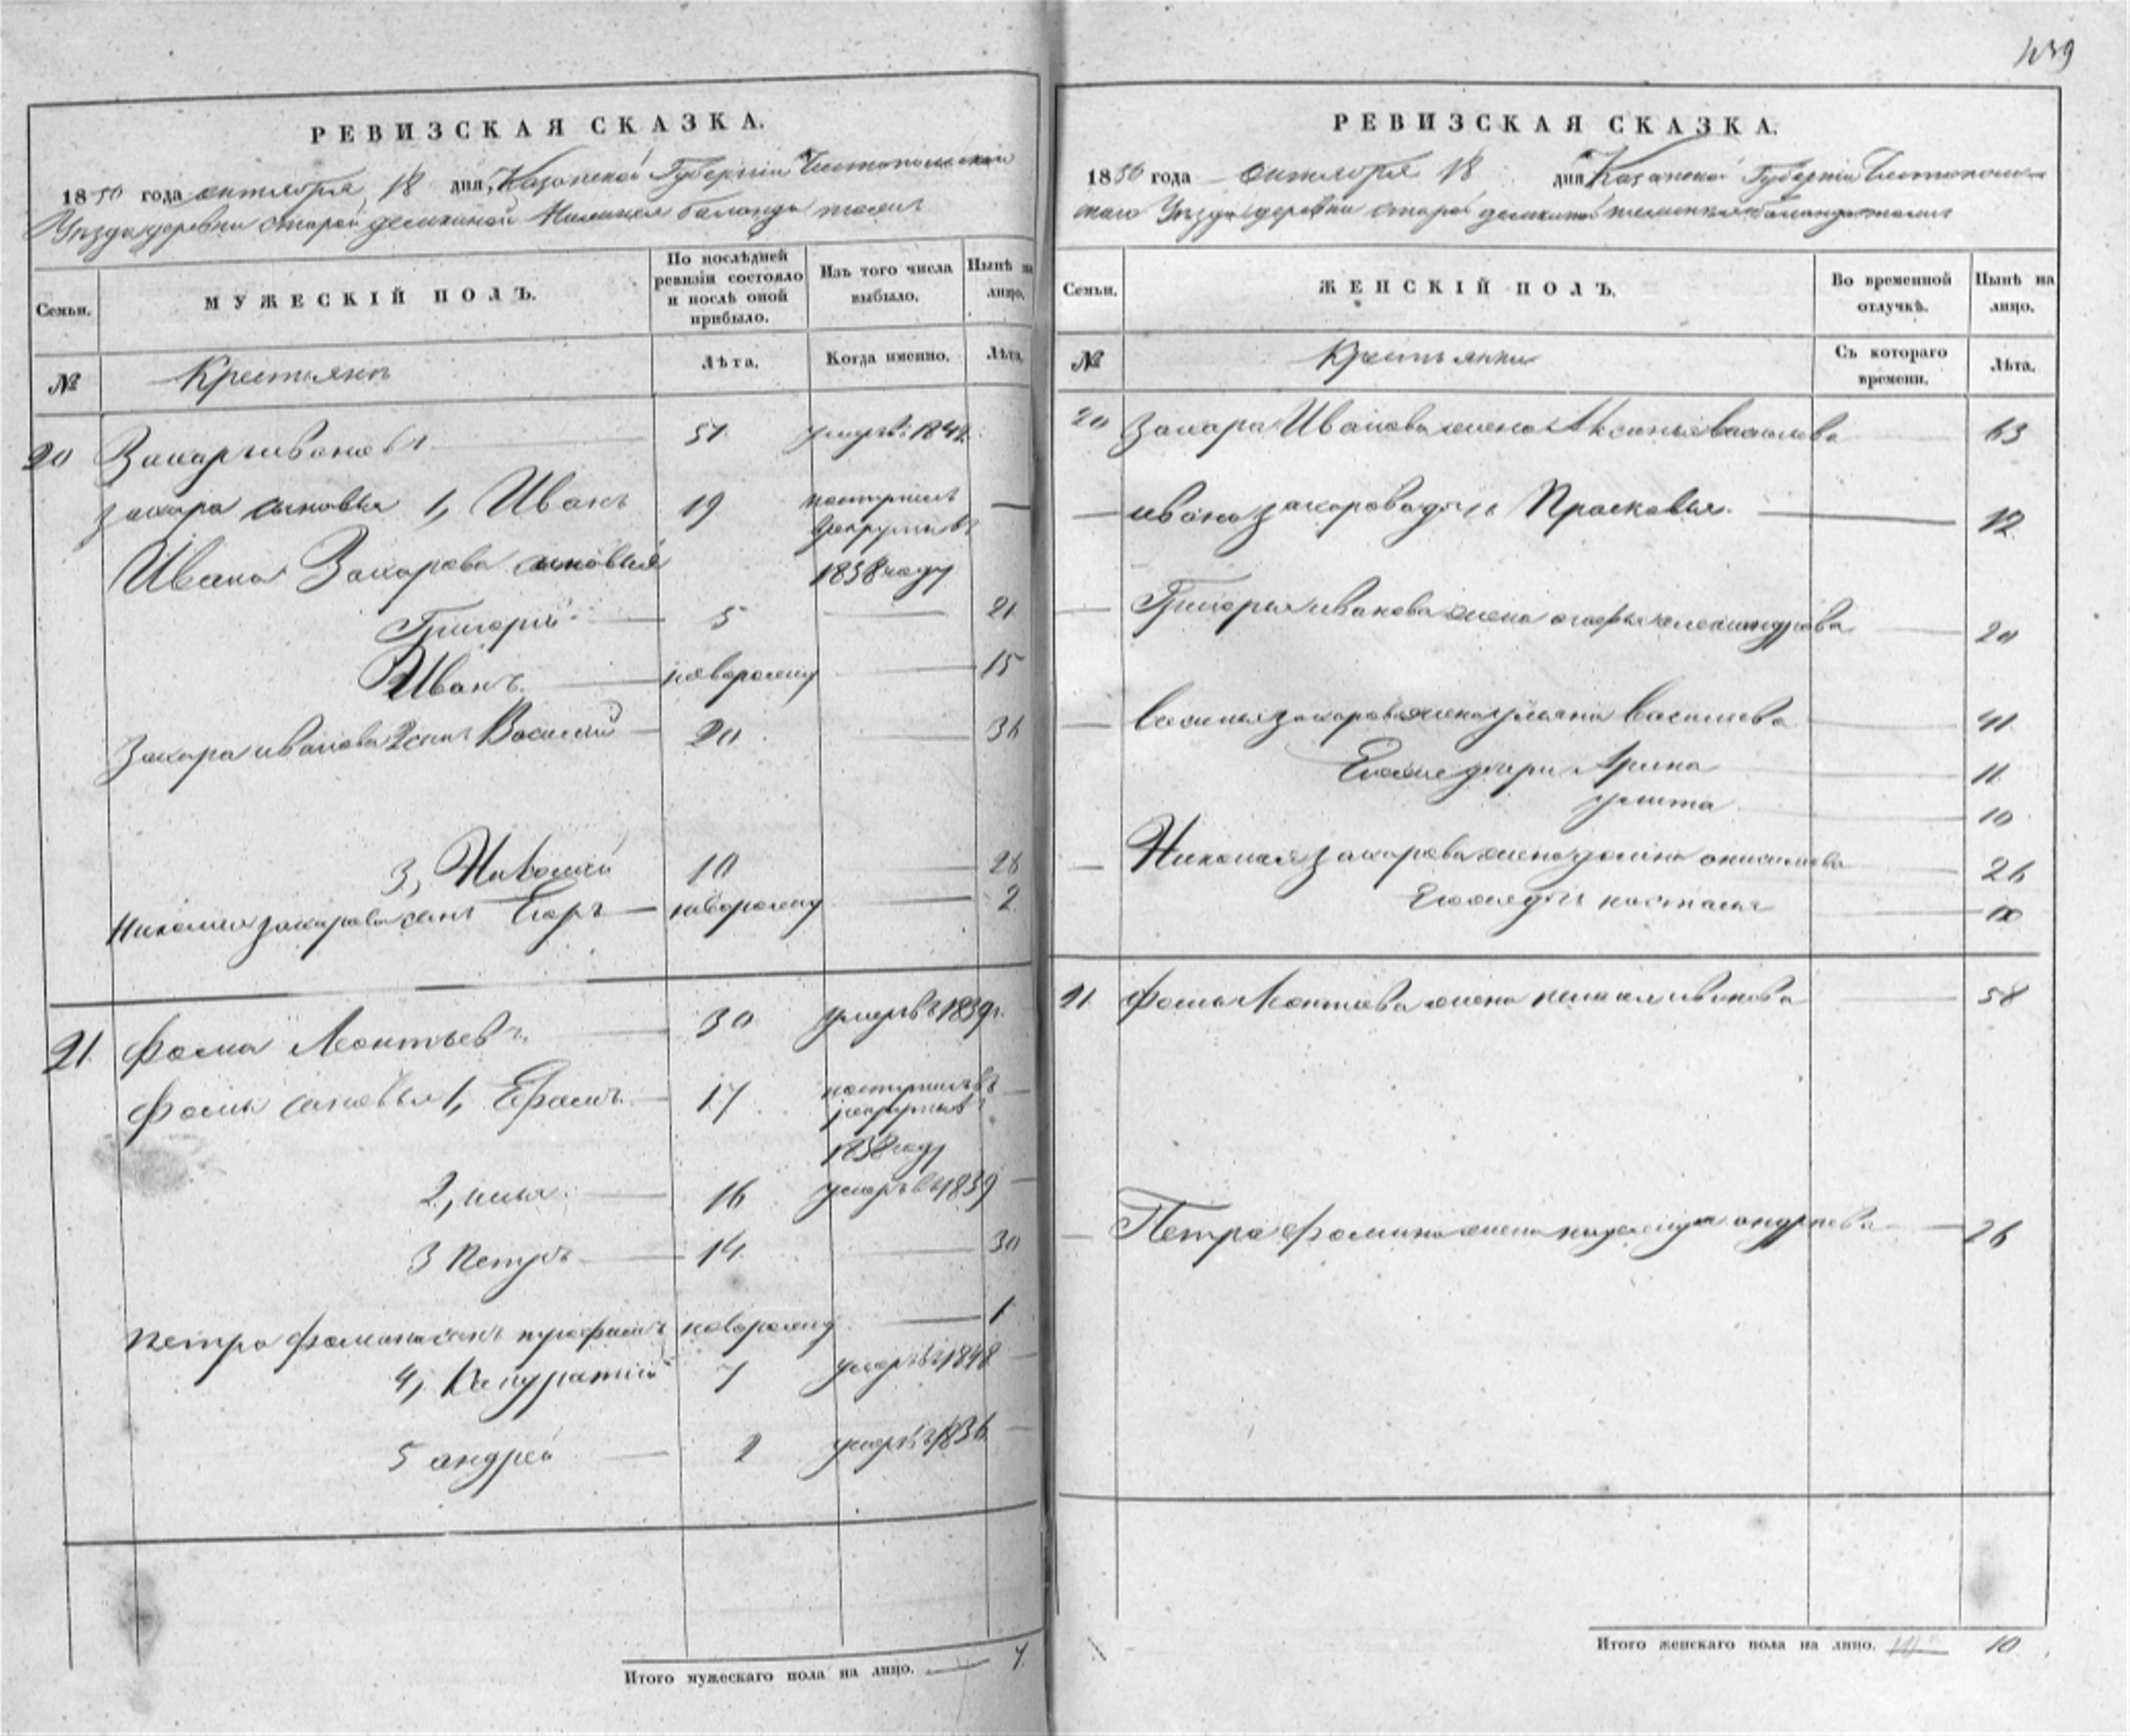 439
РЕВИЗСКАЯ СКАЗКА.
1850 года октября 18 дня, Казанской Губернии Чистопольскаго
Уѣзда деревни Старой
Семьи.
МУЖЕСКІЙ ПОЛЪ.
По послѣдней ревизіи состояло и послѣ оной прибыло.
Изъ того числа выбыло.
Нынѣ на лицо.
№
Крестьянъ
Лѣта.
Когда именно.
Лѣта.
20 Захаръ Ивановъ 51 умеръ въ
Захара сыновья 1, Иванъ 19 поступилъ
в рекруты в
Ивана Захарова сыновья 1838 году
Григорій 5 21
Иванъ новорожд 15
Захара Иванова 2 сынъ Василий 20 36
3, Николай 10 26
Николая Захарова сынъ Егоръ новорожд 2
21. Фома Леонтьевъ 30 умеръ въ 1839 г.
Фомы сыновья 1, Ефимъ 17 поступилъ въ
рекруты в
1838 году
2, илья 16 умеръ въ 1839
3 Петръ 14 30
Петра Фомина сынъ новорожд 1
4, 7 умеръ въ 1848
5 андрей 2 умеръ въ 1836
Итого мужескаго пола на лицо. 7.
РЕВИЗСКАЯ СКАЗКА.
1850 года Октября 18 дня Казанской Губерніи Чистополь
скаго Уѣзда деревни Старой
Семьи.
ЖЕНСКІЙ ПОЛЪ.
Во временной отлучкѣ.
Нынѣ на лицо.
№
Крестьянки
Съ котораго времени.
Лѣта.
20 Захара Иванова жена Аксинья Васильева 63
ивана захарова дочь Прасковья. 12
Григорья иванова жена александрова 20
Василья захарова жена ульяна Васильева 41
Его же дочери Арина 11
улита 10
Николая Захарова жена онисимова 26
Его же дочь настасья
21. Фомы Леонтьева жена иванова 58
Петра Фомина жена надежда андреева 26
Итого женскаго пола на лицо. 10